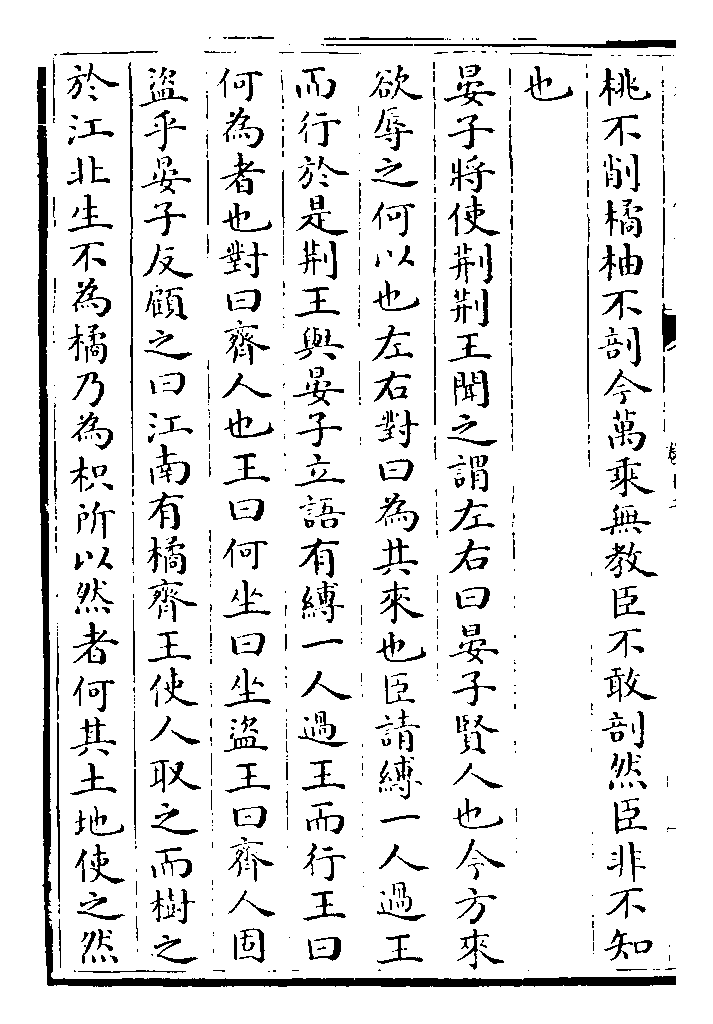 桃不削橘柚不剖今萬乘無教臣不敢剖然臣非不知
也
晏子將使荆荆王聞之謂左右曰晏子賢人也今方來
欲辱之何以也左右對曰為其來也臣請縛一人過王
而行於是荆王與晏子立語有縛一人過王而行王曰
何為者也對曰齊人也王曰何坐曰坐盜王曰齊人固
盜乎晏子反顧之曰江南有橘齊王使人取之而樹之
於江北生不為橘乃為枳所以然者何其土地使之然